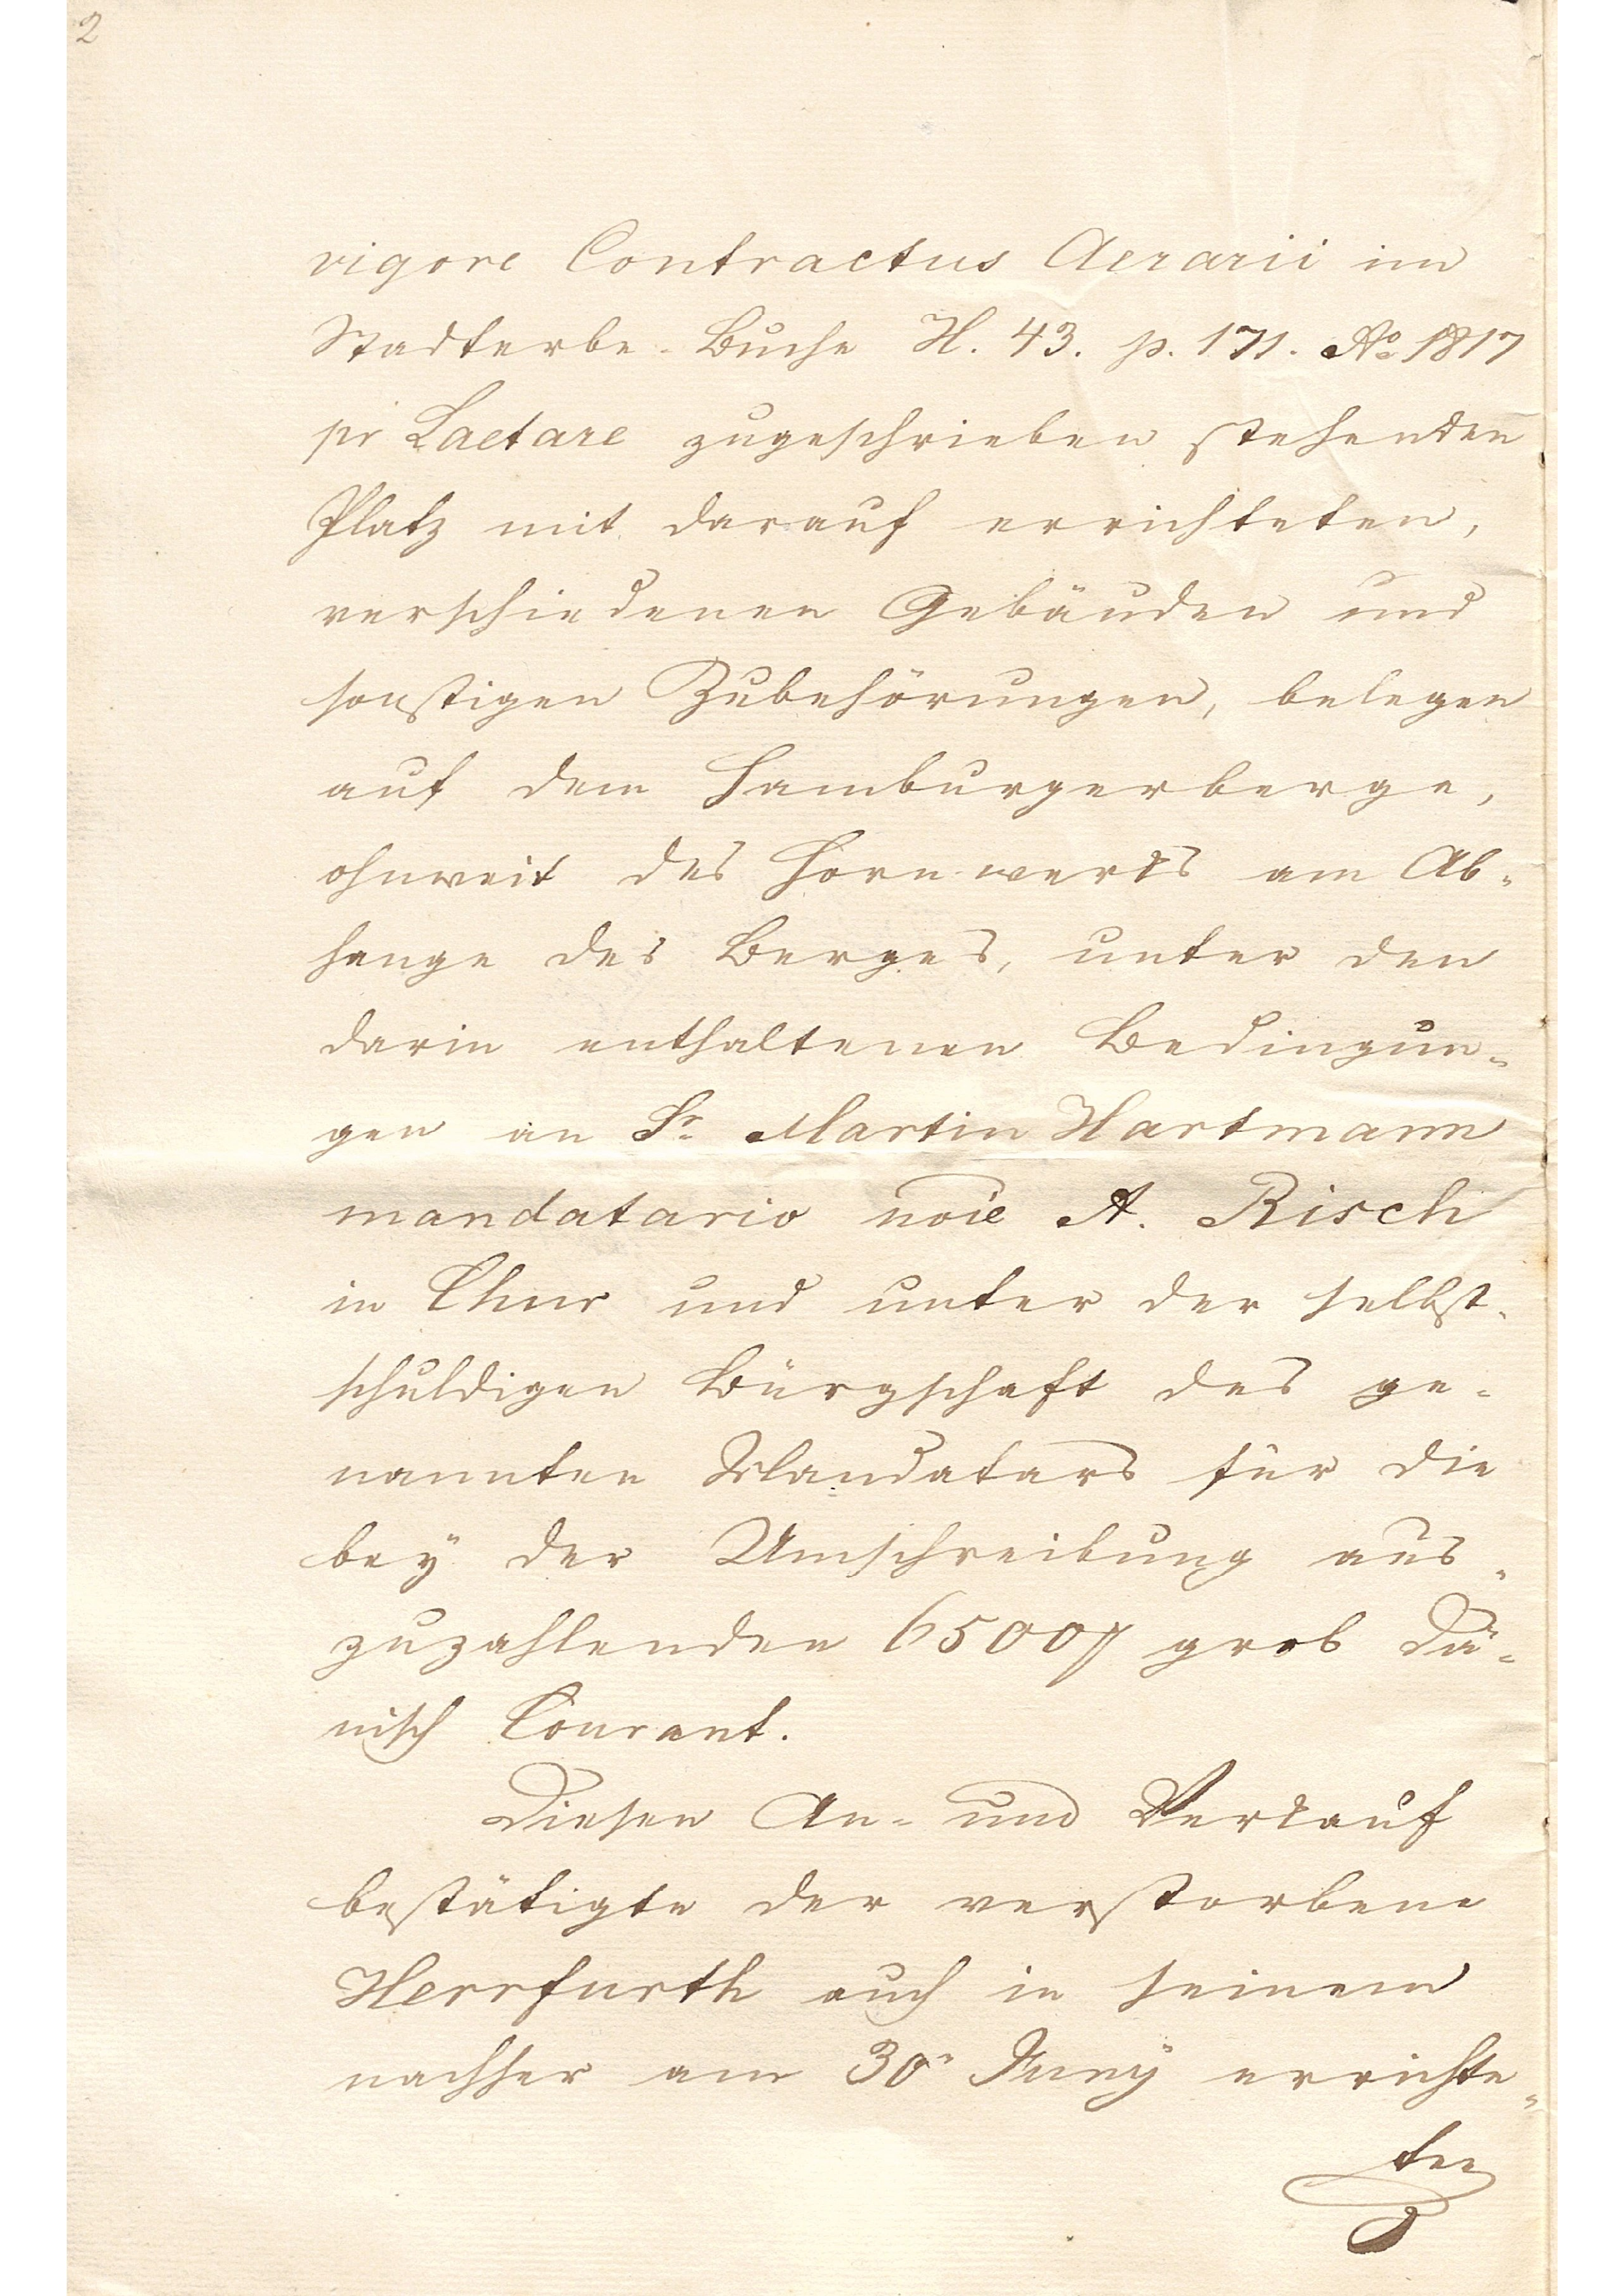 2
vigore Contractus Aerarii im
Stadterbe-Buche H. 43. p. 171. Ao 1817
pr Laetare zugeschrieben stehenden
Platz mit darauf errichteten,
verschiedenen Gebäuden und
sonstigen Zubehörungen, belegen
auf dem Hamburgerberge,
ohnweit des Hornwerks am Ab-
hange des Berges, unter den
darin enthaltenen Bedingun-
gen an Sr. Martin Hartmann
mandatario noie A. Risch
in Chur und unter der selbst-
schuldigen Bürgschaft des ge-
nannten Mandatars für die
bey der Umschreibung aus-
zuzahlenden 6500 grob Dä-
nisch Courant.
Diesen An- und Verkauf
bestätigte der verstorbene
Herrfurth auch in seinem
nachher am 30n Juny errichte-
ten